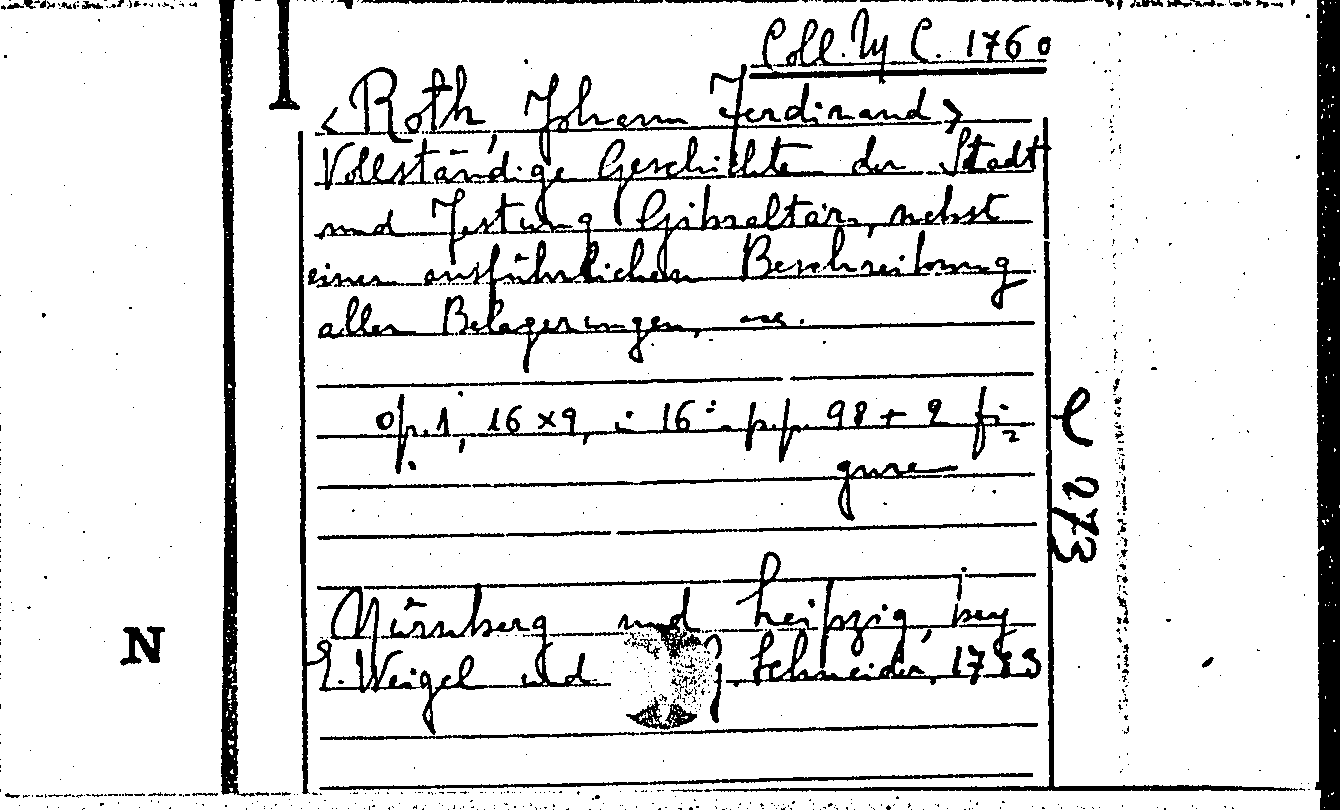 Coll. C. 1760
<Roth, Johann Ferdinand>
Vollständige Geschichte der Stadt
und Festung Gibraltar, nebst
einer ausführlichen Beschreibung
aller Belagerungen,
op. 1, 16 x 9, in 16° p.p. 98 + 2 fi=
gure
Nürnberg und Leipzig, bey
E. Weigel und Schneider, 1783
N
C 273